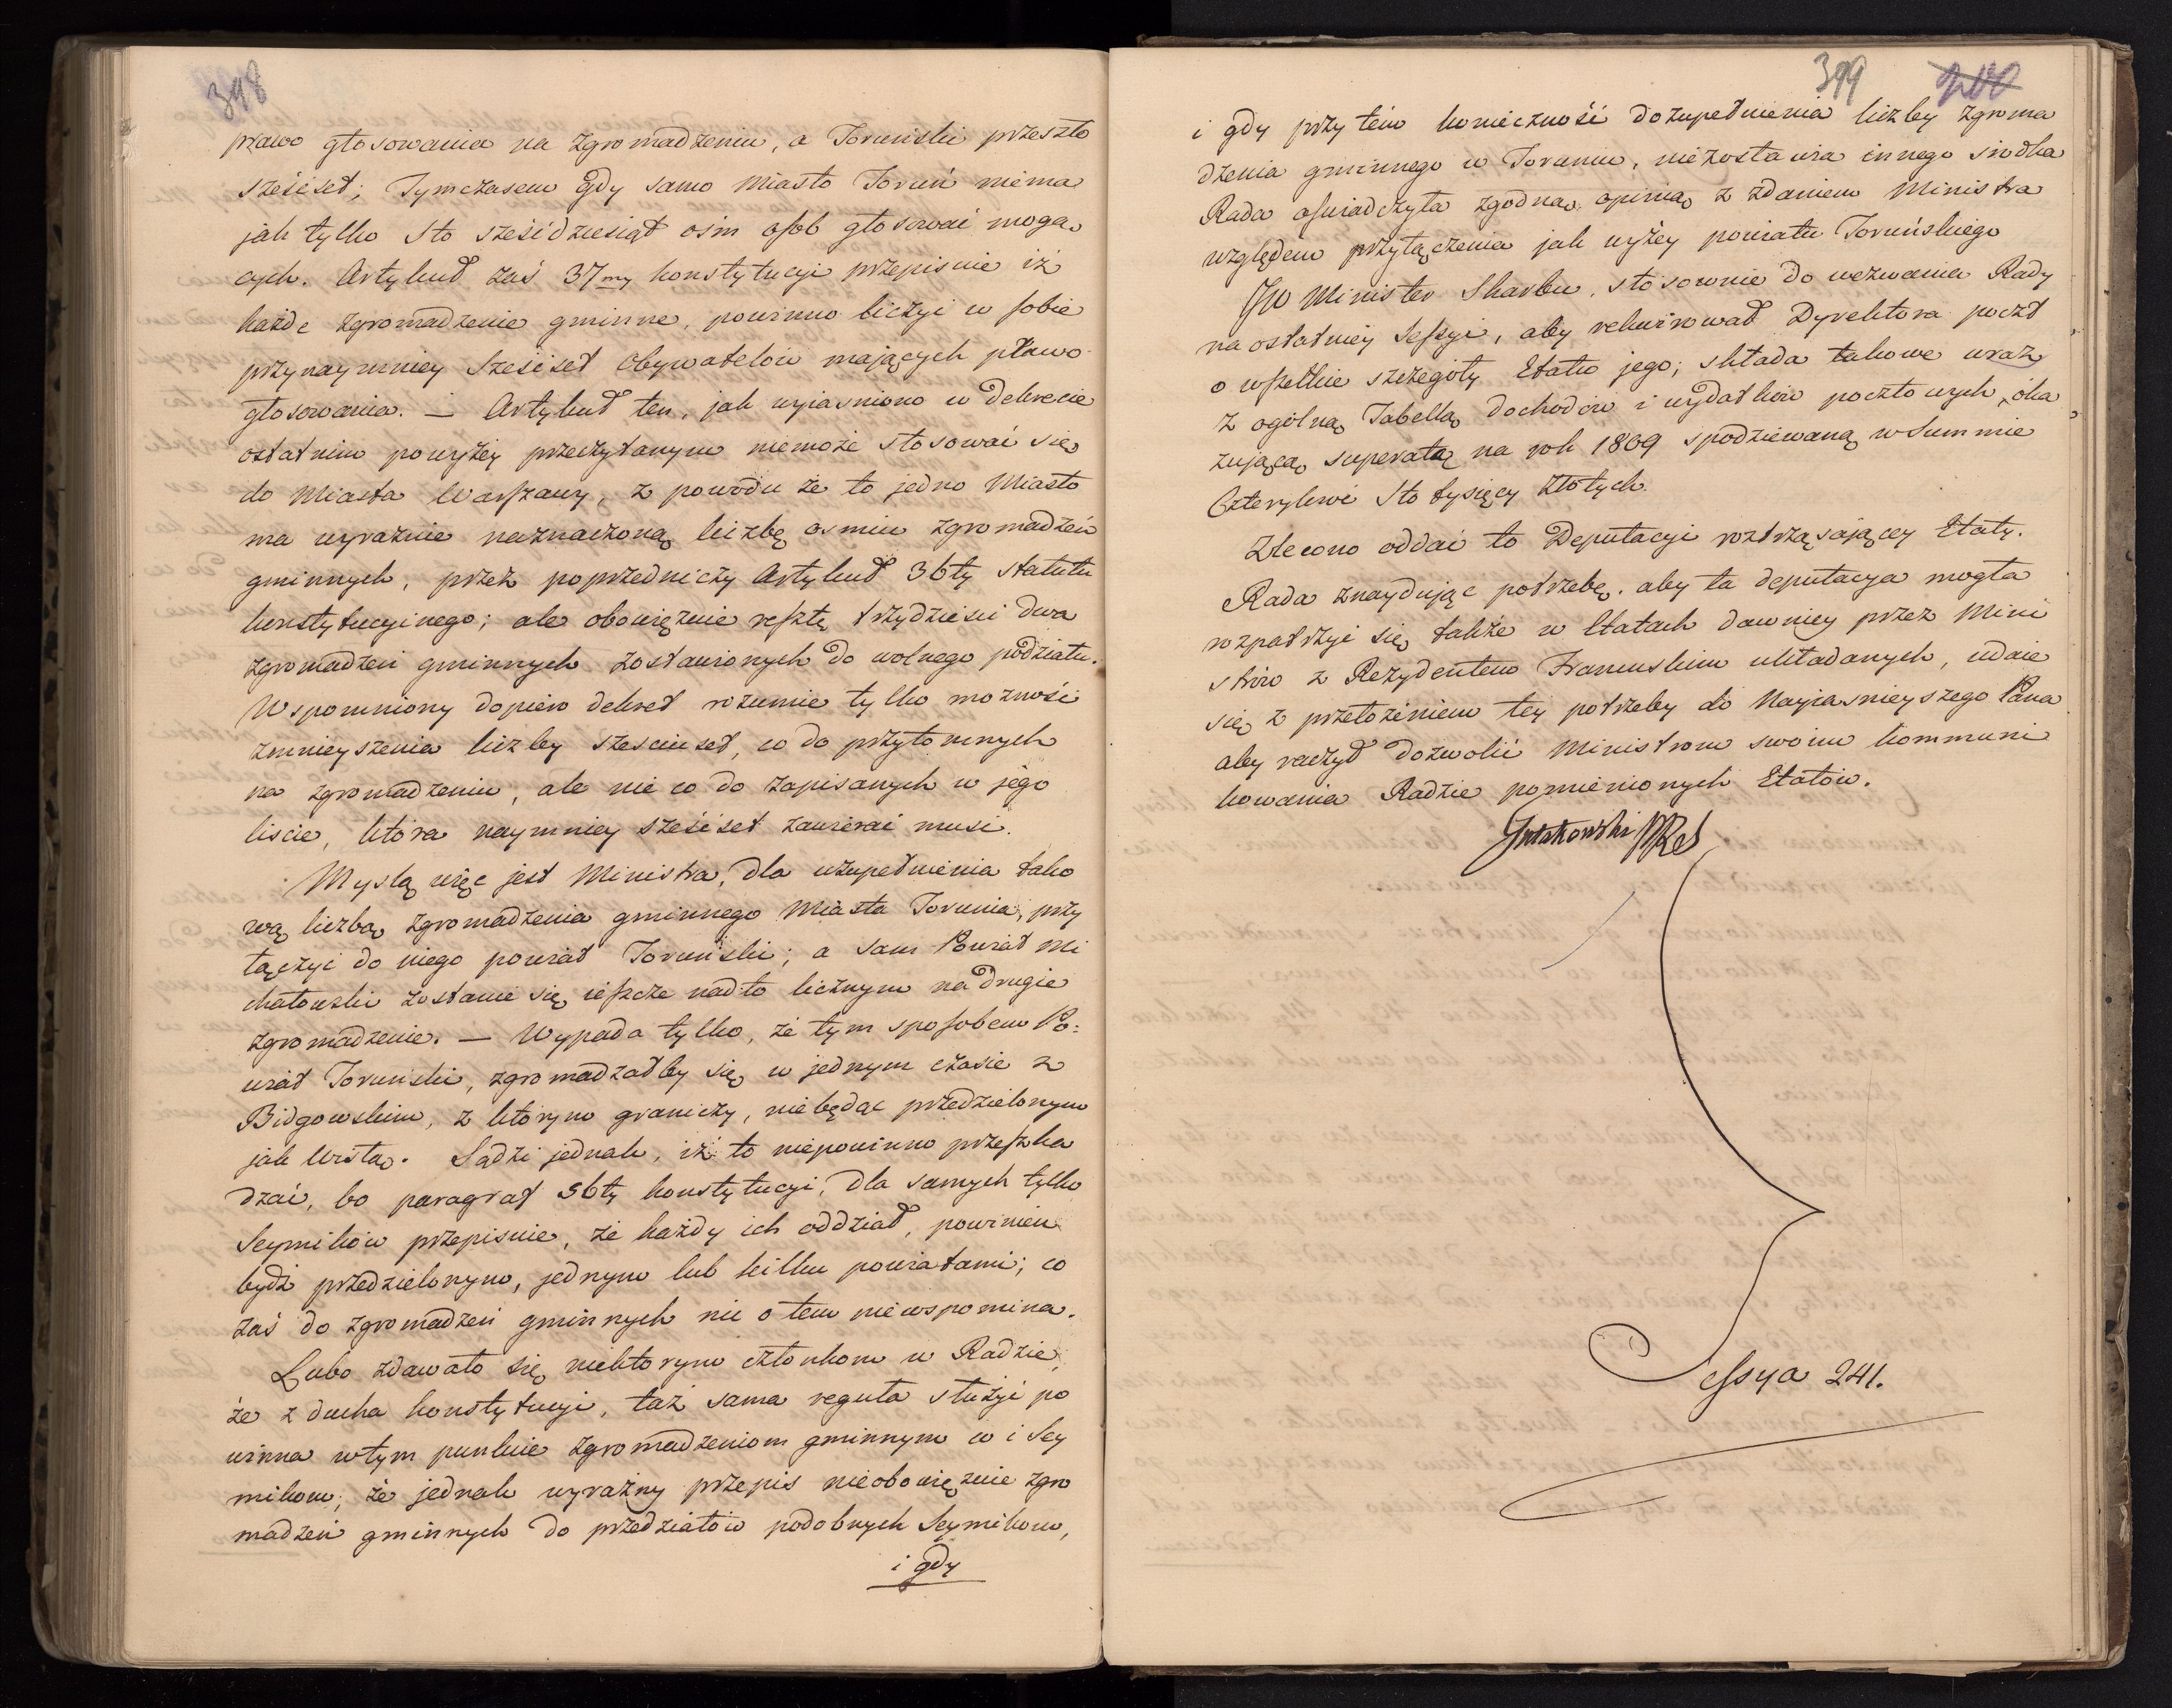 398
prawo głosowania na zgromadzeniu, a Toruński przeszło
sześćset; Tymczasem gdy samo Miasto Toruń niema
jak tylko Sto sześćdziesiąt ośm osob głosować mogą
cych. Artykuł zaś 37my konstytucyi przepisuie iż
każde zgromadzenie gminne, powinno liczyć w sobie
przynaymniey Sześćset Obywatelów mających prawo
głosowania. — Artykuł ten, jak wyiasniono w dekrecie
ostatnim powyżey przeczytanym niemoże stosować się
do Miasta Warszawy, z powodu że to jedno Miasto
ma wyraźnie naznaczoną liczbę osmiu zgromadzeń
gminnych, przez poprzedniczy Artykuł 36ty statutu
konstytucyinego; ale obowięzuie resztę trzydzieści dwa
zgromadzeń gminnych zostawionych do wolnego podziału.
Wspomniony dopiero dekret rozumie tylko możność
zmnieyszenia liczby szesciuset, co do przytomnych
na zgromadzeniu, ale nie co do zapisanych w jego
liscie, która naymniey sześćset zawierać musi.
Myslą więc jest Ministra, dla uzupełnienia tako
wą liczbą zgromadzenia gminnego Miasta Torunia, przy
łączyć do niego powiat Toruński; a sam Powiat Mi
chałowski zostanie się ieszcze nadto licznym na drugie
zgromadzenie. — Wypada tylko, że tym sposobem Po:
wiat Toruński, zgromadzałby się w jednym czasie z
Bidgowskim, z którym graniczy, niebędąc przedzielonym
jak Wisłą. Sądzi jednak, iż to niepowinno przeszka
dzać, bo paragraf 36ty konstytucyi, dla samych tylko
Seymików przepisuie, że każdy ich oddział, powinien
bydź przedzielonym, jednym lub kilku powiatami; co
zaś do zgromadzeń gminnych nic o tem niewspomina.
Lubo zdawało się niektorym członkom w Radzie,
że z ducha konstytucyi, taż sama reguła służyć po
winna w tym punkcie zgromadzeniom gminnym co i Sey
mikom; że jednak wyraźny przepis nieobowięzuie zgro
madzeń gminnych do przedziałów podobnych Seymikom,
i gdy
399 200
i gdy przy tém konieczność dozupełnienia liczby zgroma
dzenia gminnego w Toruniu, niezostawia innego srodka
Rada oswiadczyła zgodną opinią z zdaniem Ministra
względem przyłączenia jak wyżey powiatu Toruńskiego
JW Minister Skarbu, stosownie do wezwania Rady
na ostatniey Sessyi, aby rekwirował Dyrektora poczt
o wszelkie szczegóły Etatu jego; składa takowe wraz
z ogólną Tabellą dochodów i wydatków pocztowych, oka
zującą superatę na rok 1809 spodziewaną w Summie
Czterykroć Sto tysięcy złotych.
Zlecono oddać to Deputacyi roztrząsaiącey Etaty.
Rada znayduiąc potrzebę, aby ta deputacya mogła
rozpatrzyć się także w Etatach dawniey przez Mini
strów z Rezydentem Francuskim układanych, udaie
się z przełożeniem tey potrzeby do Nayiasnieyszego Pana
aby raczył dozwolić Ministrom swoim kommuni
kowania Radzie pomienionych Etatów.
Gutakowski PRS
Sessya 241.